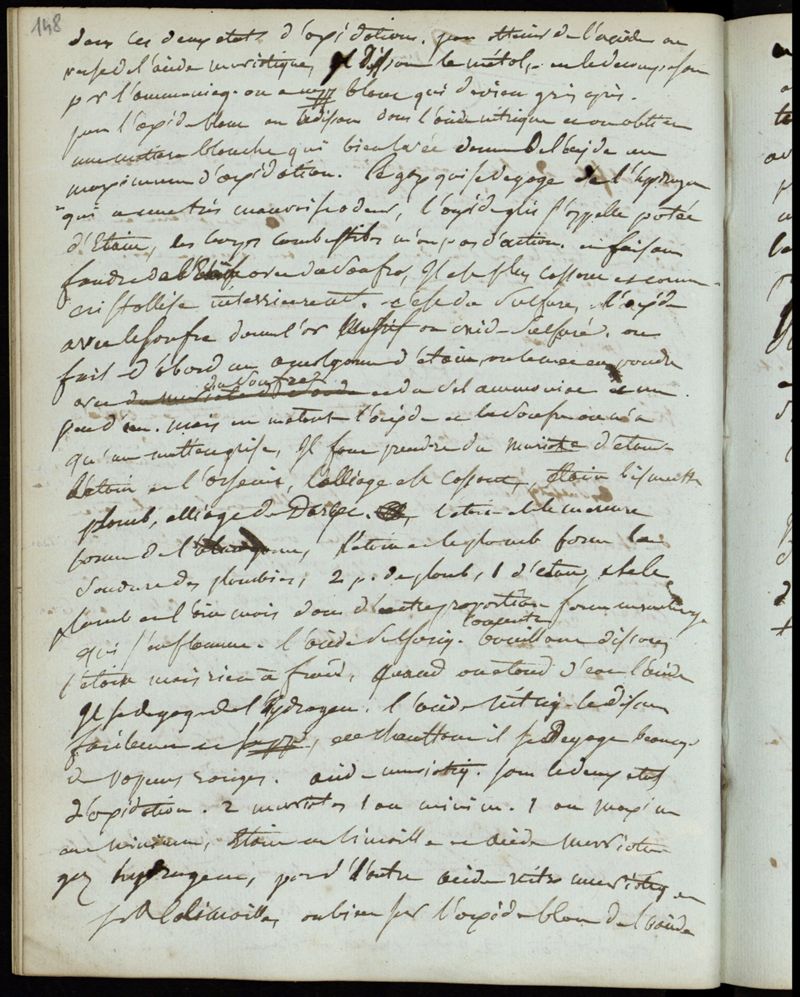 148
dans les deux etats d'oxidation. pour obtenir de l'oxide on
verse de l'acide muriatique, il dissout le métal, en le decomposant
par l'ammoniaq. on a un pp blanc qui devien gris après.
pour l'oxide blanc on le disout dans l'acide nitrique et on obtien
une matiere blanche qui bien lavée donne de l'oxide au
maximum d'oxidation. le gaz qui se degage de l'hydrogen
qui a une très mauvaise odeur, l'oxide gris s'appelle potée
d'Etain, les corps combustibles n'ont pas d'action. en faisant
fondre de l'Etain avec du Soufre, il est plus cassant et comme
cristallisé interieurement. c'est du sulfure, l'oxide
avec le soufre donne l'or Musif ou oxide sulfuré. on
fait d'abord un amalgame d'étain, on le met en poudre
avec du soufre et du sel ammoniac et un
peu d' mais en mettant l'oxide et le soufre on n'a
qu'une matte grise, il faut prendre du muriate d'etain
l'étain et l'arsenic, l'alliage est cassant, étain bismuth
plomb, alliage de Darcet. l'etain et le mercure
forme de l' l'étain et le plomb forme la
soudure des plombiers, 2 p. de plomb, 1 d'etain, et le
plomb et l'étain mais dans d'autre proportion forme un mélange
qui s'enflamme. l'acide sulfuriq. concentré bouillant dissout
l'étain mais rien à froid, quand on etend d'eau l'acide
il se degage de l'hydrogen. l'acide nitriq. le disout
facilement et en chauffant il se degage beaucoup
de vapeurs rouges. acide muriatiq. sous les deux etats
d'oxidation. 2 muriates 1 au minim. 1 au maxim
au minimum, Etain en limaille et acide muriatiq
gaz hydrogene, pour l'autre acide nitro muriatiq et
sur la limaille, ou bien sur l'oxide blanc de l'acide